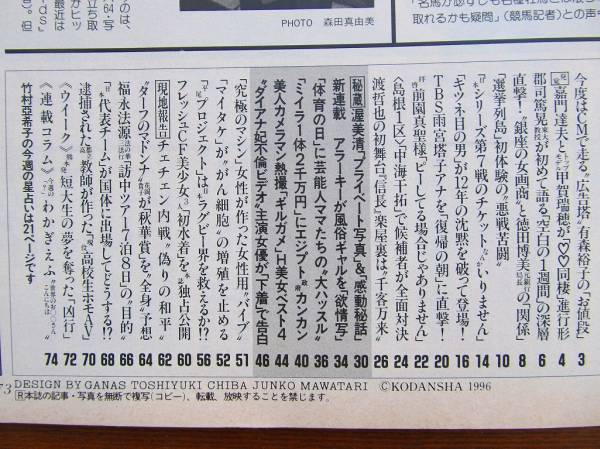 のは、
立ち取
PHOTO 森田真由美
取れるかも疑問」(競馬記者)との声も
今度はCMで走る“広告塔”有森裕子の「お値段」 3
嘉門達夫と甲賀瑞穂が“♡♡同棲”進行形 4
郡司篤晃が初めて語る「空白の1週間」の深層 6
直撃!“銀座の女画商”と徳田博美の“関係” 8
「選挙列島」初体験の“悪戦苦闘” 10
「日本シリーズ第7戦のチケット、いりません」 14
「キツネ目の男」が12年の沈黙を破って登場! 16
TBS・雨宮塔子アナを「復帰の朝」に直撃! 20
拝啓 前園真聖様「ピーしてる場合じゃありません」 22
〈島根1区〉“中海干拓”で候補者が全面対決 24
渡哲也の初舞台「信長」楽屋裏は“千客万来” 26
秘蔵 渥美清、「プライベート写真」&「感動秘話」 30
新連載 アラーキーが風俗ギャルを“欲情写” 34
「体育の日」に芸能人ママたちの“大ハッスル” 36
「ミイラ一体2千万円」にエジプト政府カンカン 40
美人カメラマン熱撮「ギルガメ」H美女ベスト4 44
“ダイアナ妃不倫ビデオ”主演女優が“下着”で告白 46
「究極のマシン」女性が作った女性用“バイブ” 51
「マイタケ」が“がん細胞”の増殖を止める 52
「平尾プロジェクト」はラグビー界を救えるか!? 56
フレッシュCF美少女〈3人〉“初水着”を独占公開 60
現地報告 チェチェン内戦“偽りの和平” 62
“ターフのマドンナ”が「秋華賞」を“全身”予想 64
福永法源“訪中ツアー7泊8日”の“目的” 66
「日本代表チーム」が国体に出場してどうする!? 68
逮捕された教師が作った「現役高校生ホモAV」 70
《ウイーク》短大生の夢を奪った「凶行」 72
《連載コラム》わかぎえふ 74
竹村亜希子の今週の星占いは21ページです
73 DESIGN BY GANAS TOSHIYUKI CHIBA JUNKO MAWATARI ©KODANSHA 1996
R本誌の記事・写真を無断で複写(コピー)、転載、放映することを禁じます。